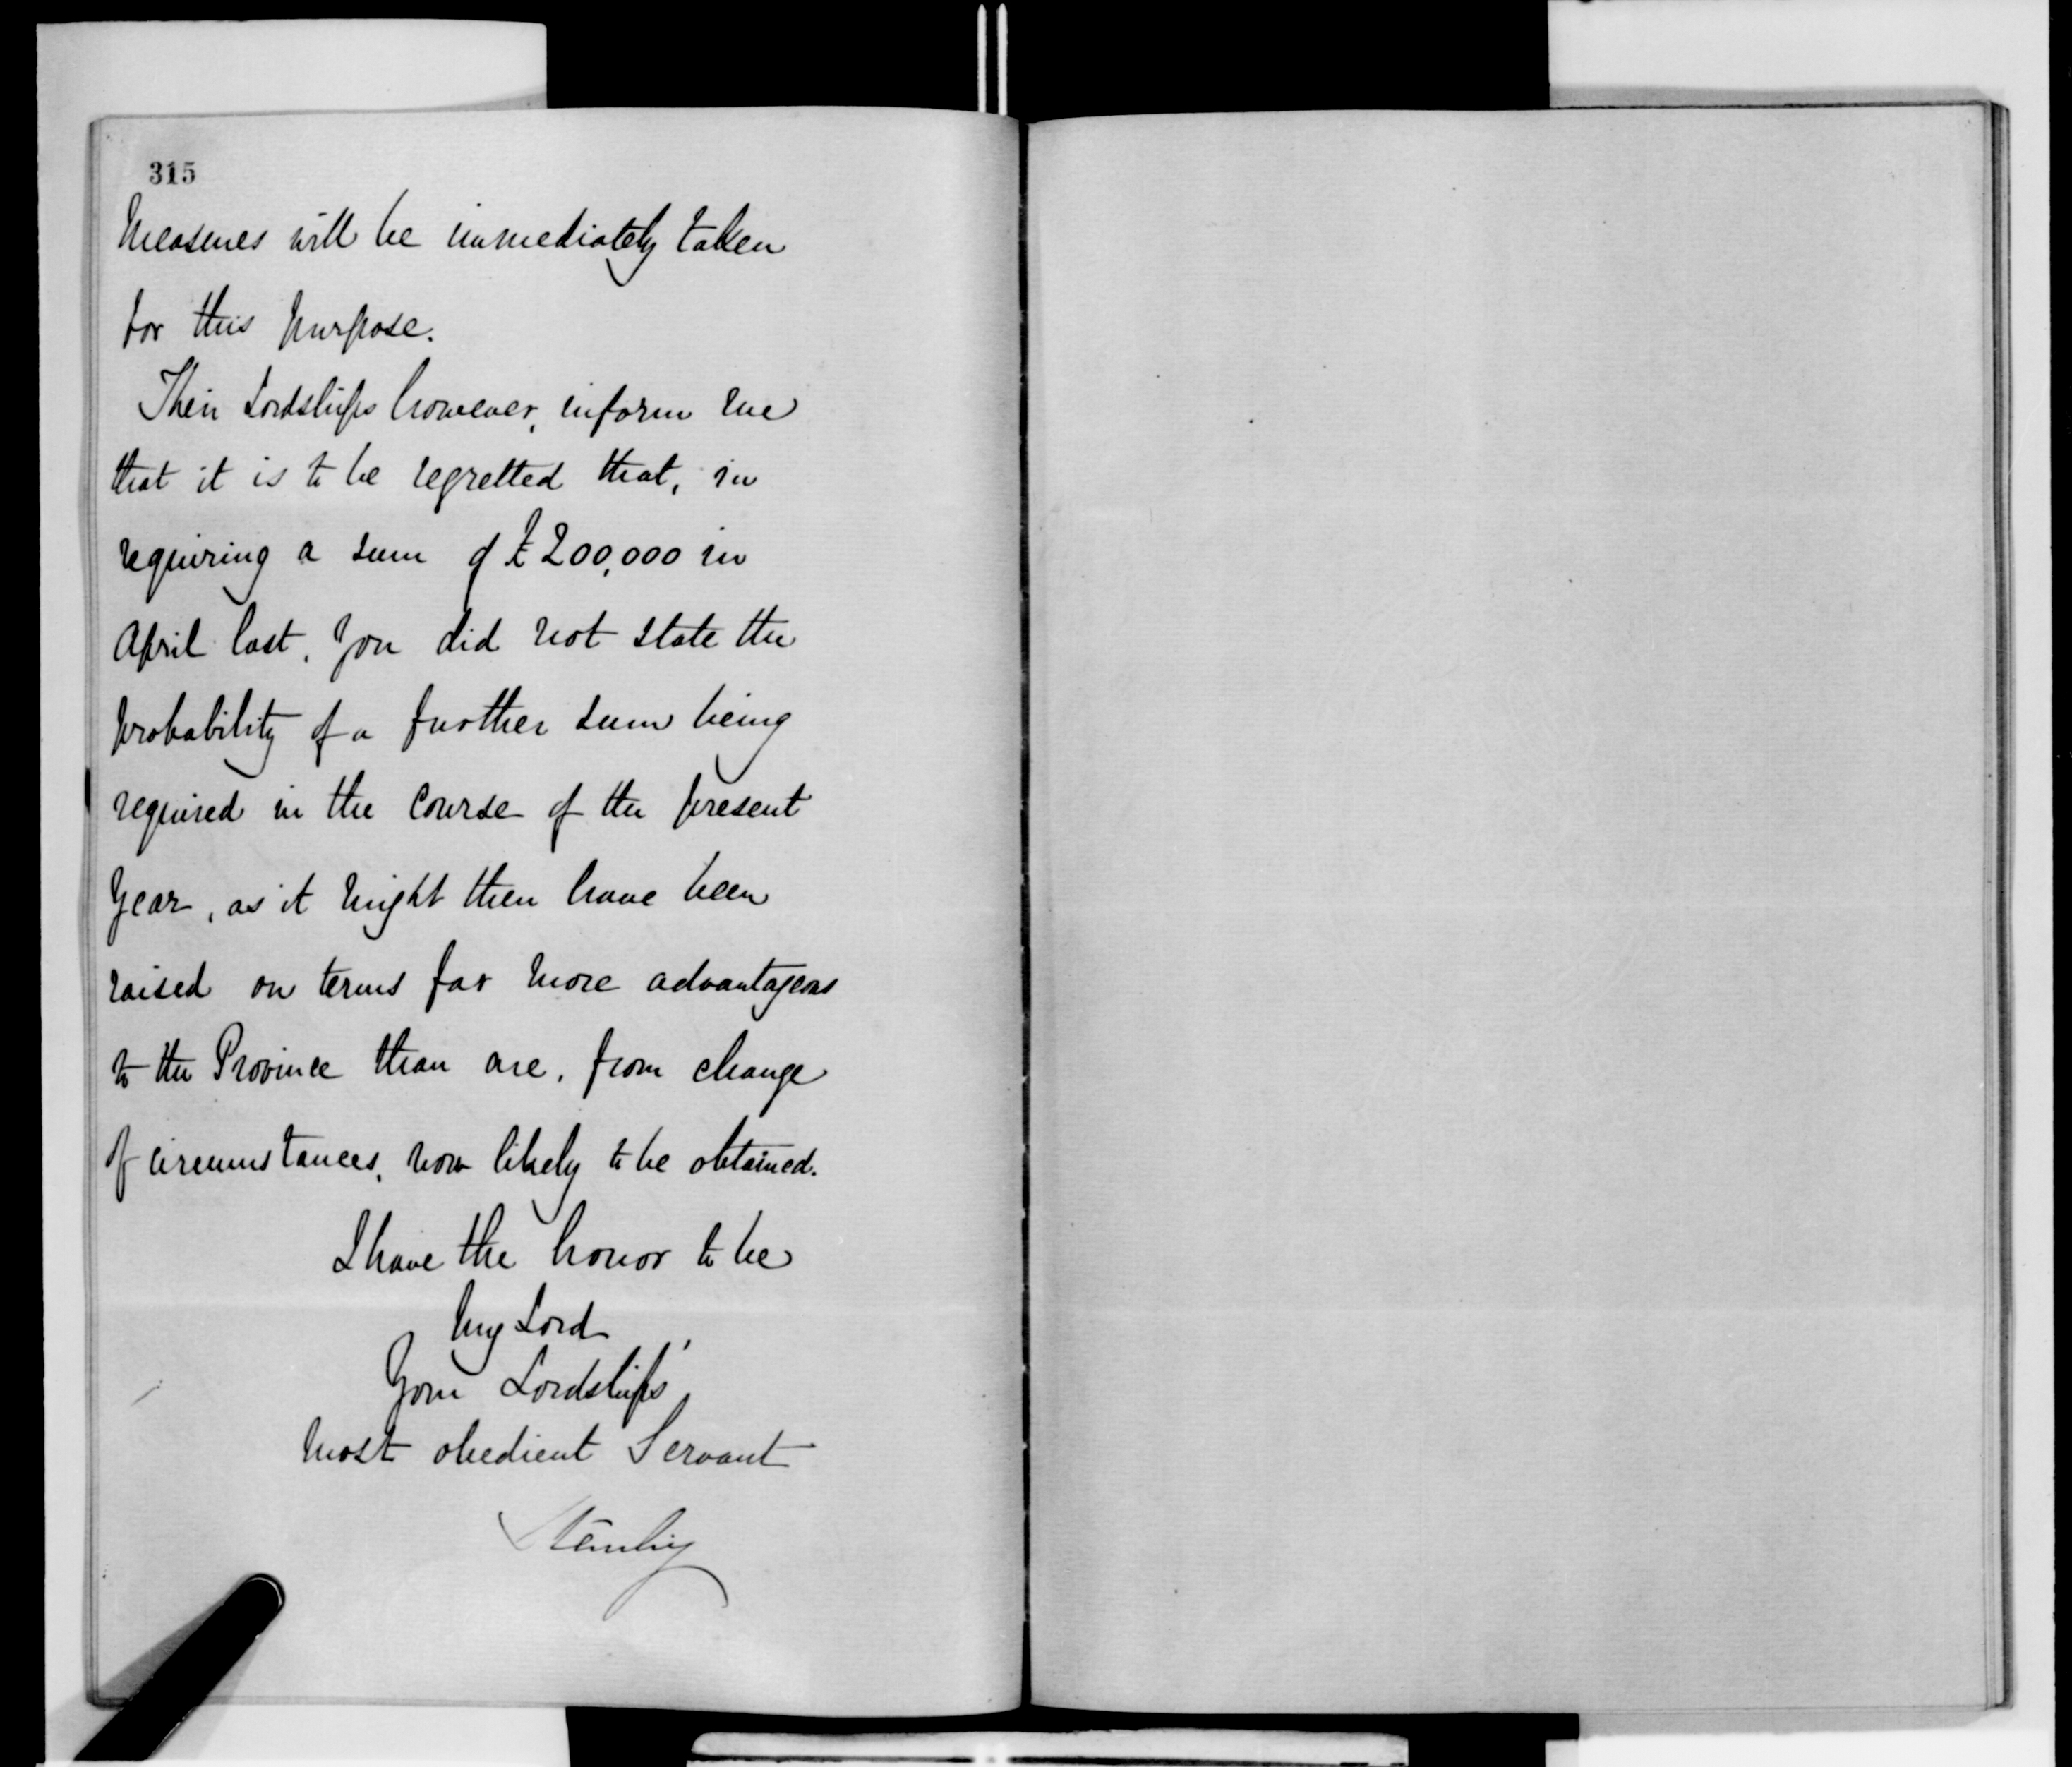 315
Measures will be immediately taken
for this purpose.
Their Lordships however, inform me
that it is to be regretted that, in
requiring a sum of £200,000 in
April last, you did not state the
probability of a further sum being
required in the course of the present
Year, as it might then have been
raised on terms far more advantageous
to the Province than are, from change
of circumstances, now likely to be obtained.
I have the honor to be
My Lord
Your Lordship's
Most obedient Servant
Stanley